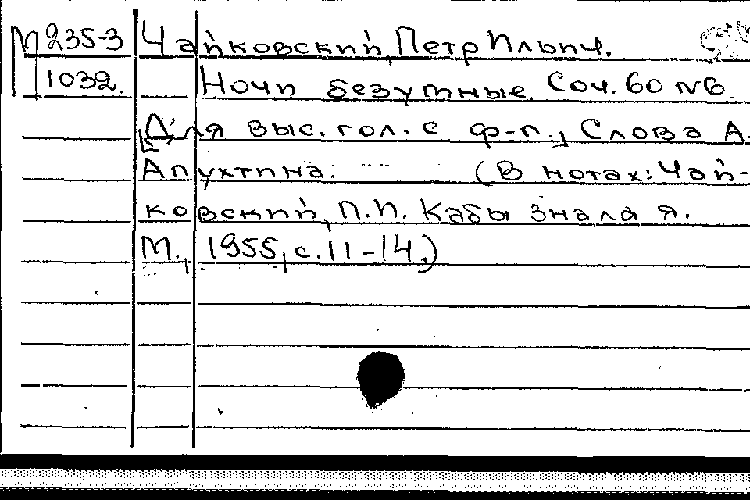 М 235-3 Чайковский, Петр Ильич.
1032. Ночи безумные. Соч. 60 №6.
Для выс. гол. с ф-п., Слова А.
Апухтина. (В нотах: Чай-
ковский, П.И. Кабы знала я.
М., 1955, с. 11-14.)